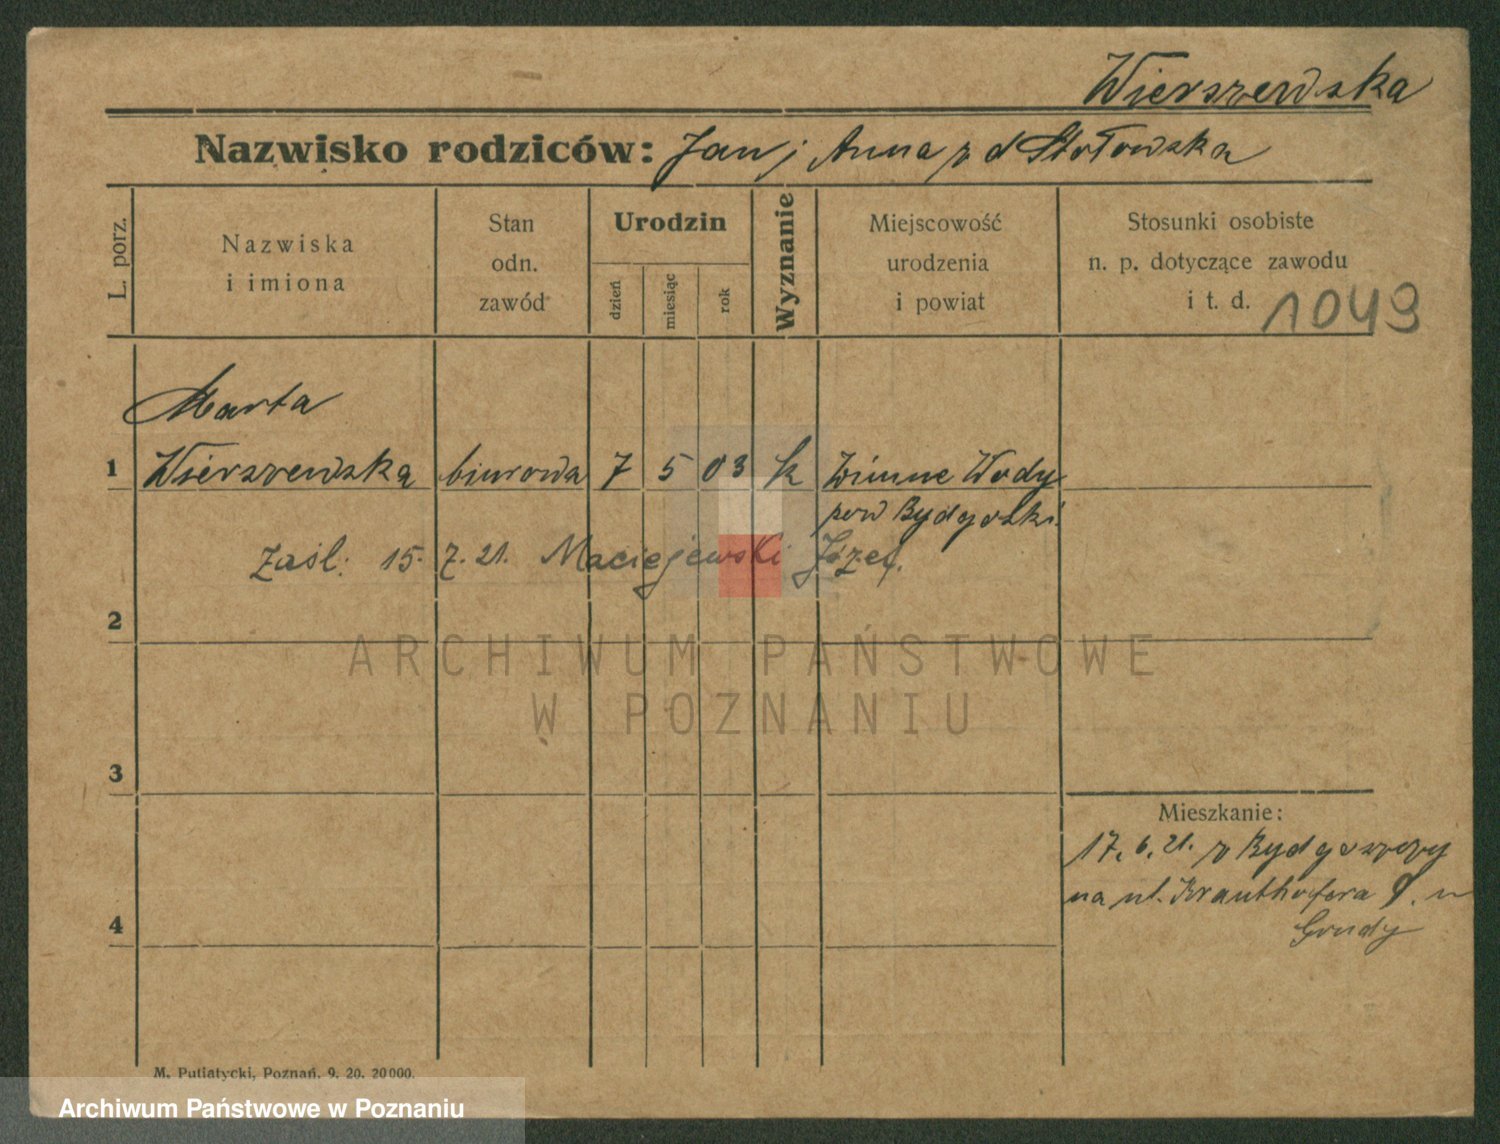 Wierszewska
Nazwisko rodziców: Jan i Anna z d Stołowska
L. porz.
Nazwiska
i imiona
Stan
odn.
zawód
Urodzin
dzień
miesiąc
rok
Wyznanie
Miejscowość
urodzenia
i powiat
Stosunki osobiste
n. p. dotyczące zawodu
i t. d. 1049
Marta
1 Wierszewska biurowa 7 5 03 k Zimne Wody
pow Bydgoski
Zaśl: 15. 7. 21. Maciejewski Józef.
2
ARCHIWUM PAŃSTWOWE
W POZNANIU
3
Mieszkanie:
17. 6. 21. z Bydgoszczy
na ul. Krauthofera 9. u
4
Grudy
M. Putiatycki, Poznań. 9. 20. 20000.
Archiwum Państwowe w Poznaniu